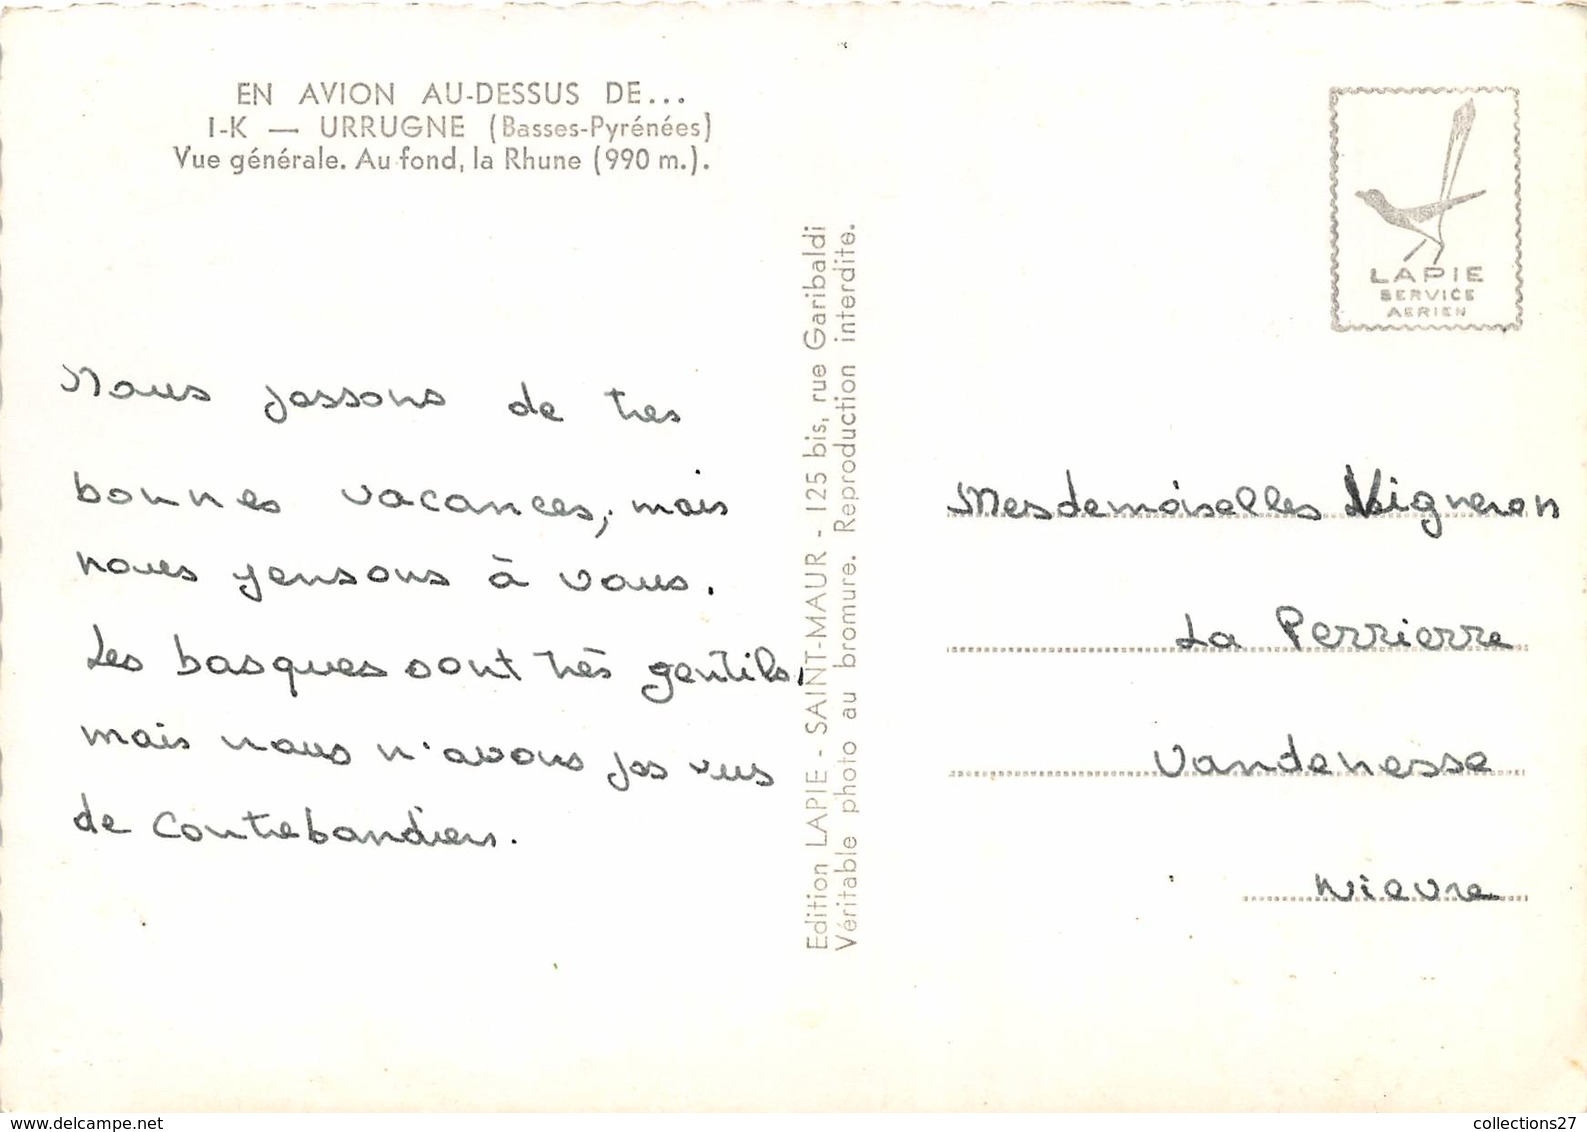 EN AVION AU-DESSUS DE...
I-K — URRUGNE (Basses-Pyrénées)
Vue générale. Au fond, la Rhune (990 m.).
Nous passons de tres
bonnes vacances, mais
nous pensons à vous.
Les basques sont très gentils,
mais nous n'avons pas vus
de contrebandiers.
Edition LAPIE - SAINT-MAUR - 125 bis, rue Garibaldi
Véritable photo au bromure. Reproduction interdite.
LAPIE
SERVICE
AERIEN
Mesdemoiselles Vigneron
La Perrierre
Vandenesse
Nievre
collections27